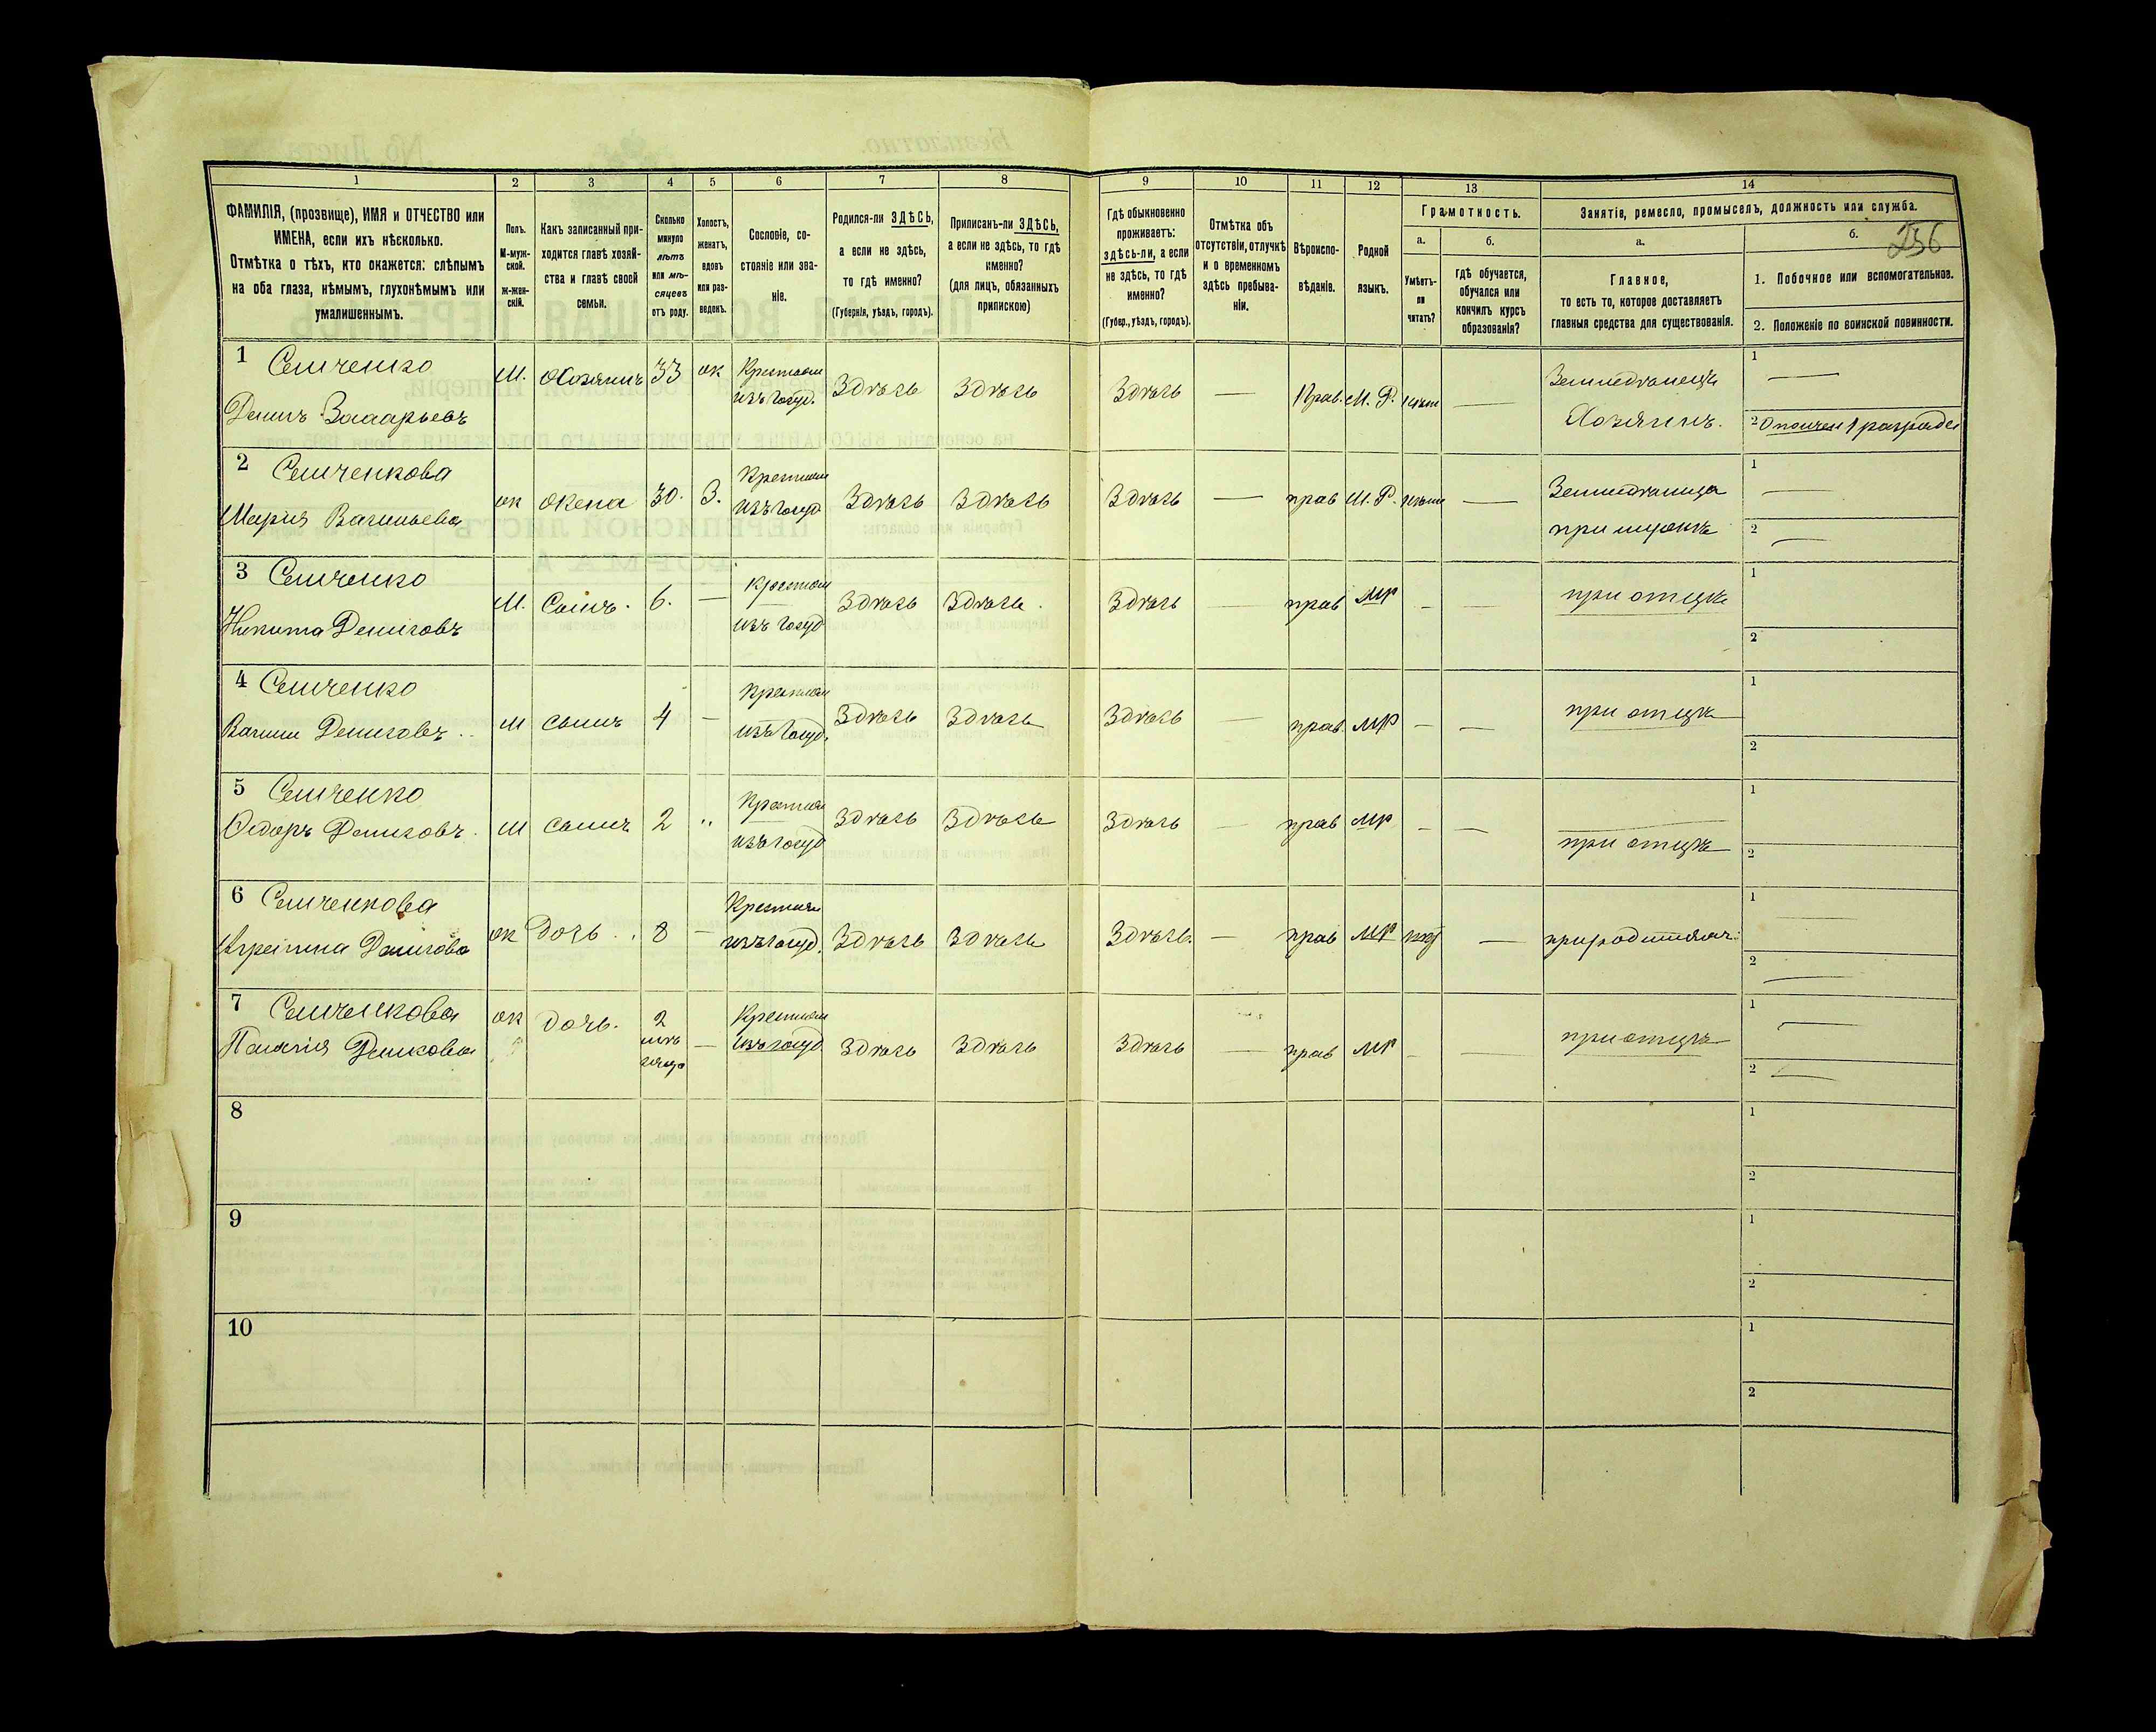 1 2 3 4 5 6 7 8 9 10 11 12 13 14
ФАМИЛІЯ, (прозвище), ИМЯ и ОТЧЕСТВО или
ИМЕНА, если ихъ нѣсколько.
Отмѣтка о тѣхъ, кто окажется: слѣпымъ
на оба глаза, нѣмымъ, глухонѣмымъ или
умалишеннымъ.
Полъ.
М-муж-
ской.
ж-жен-
скій.
Какъ записанный при-
ходится главѣ хозяй-
ства и главѣ своей
семьи.
Сколько
минуло
лѣтъ
или мѣ-
сяцевъ
отъ роду.
Холостъ,
женатъ,
вдовъ
или раз-
веденъ.
Сословіе, со-
стояніе или зва-
ніе.
Родился-ли ЗДѢСЬ,
а если не здѣсь,
то гдѣ именно?
(Губернія, уѣздъ, городъ).
Приписанъ-ли ЗДѢСЬ,
а если не здѣсь, то гдѣ
именно?
(для лицъ, обязанныхъ
припискою)
Гдѣ обыкновенно
проживаетъ:
здѣсь-ли, а если
не здѣсь, то гдѣ
именно?
(Губер., уѣздъ, городъ).
Отмѣтка объ
отсутствіи, отлучкѣ
и о временномъ
здѣсь пребыва-
ніи.
Вѣроиспо-
вѣданіе.
Родной
языкъ.
Грамотность.
а.
Умѣетъ-
ли
читать?
б.
гдѣ обучается,
обучался или
кончилъ курсъ
образованія?
Занятіе, ремесло, промыселъ, должность или служба.
а.
Главное,
то есть то, которое доставляетъ
главныя средства для существованія.
б. 256
1. Побочное или вспомогательное.
2. Положеніе по воинской повинности.
1 Семченко М. Хозяинъ 33 ж Крестьян Здѣсь Здѣсь Здѣсь — Прав. М. Р. нѣт — Земледѣлецъ 1 —
Денисъ Захарьевъ изъ госуд. Хозяинъ. 2 Ополчен 1 разряда
2 Семченкова ж жена 30. З. Крестьян Здѣсь Здѣсь Здѣсь — прав М. Р. нѣт — Земледѣлица 1 —
Мария Васильева изъ госуд при мужѣ 2 —
3 Семченко М. Сынъ. 6. — Крестьян Здѣсь Здѣсь. Здѣсь — прав МР — — при отцѣ 1
Никита Денисовъ изъ госуд 2
4 Семченко М сынъ 4 — Крестьян Здѣсь Здѣсь Здѣсь — прав. МР — — при отцѣ 1
Василий Денисовъ изъ госуд. 2
5 Семченко М сынъ 2 „ Крестьян Здѣсь Здѣсь Здѣсь — прав МР — — при отцѣ 1
Федоръ Денисовъ. изъ госуд 2
6 Семченкова ж дочь 8 — Крестьян Здѣсь Здѣсь Здѣсь. — прав МР нѣт — 1 —
Денисова изъ госуд. 2 —
7 Семченкова ж дочь. 2 — Крестьян Здѣсь Здѣсь Здѣсь — прав МР — — при отцѣ 1 —
Денисова мѣсяца изъ госуд 2 —
8 1
2
9 1
2
10 1
2